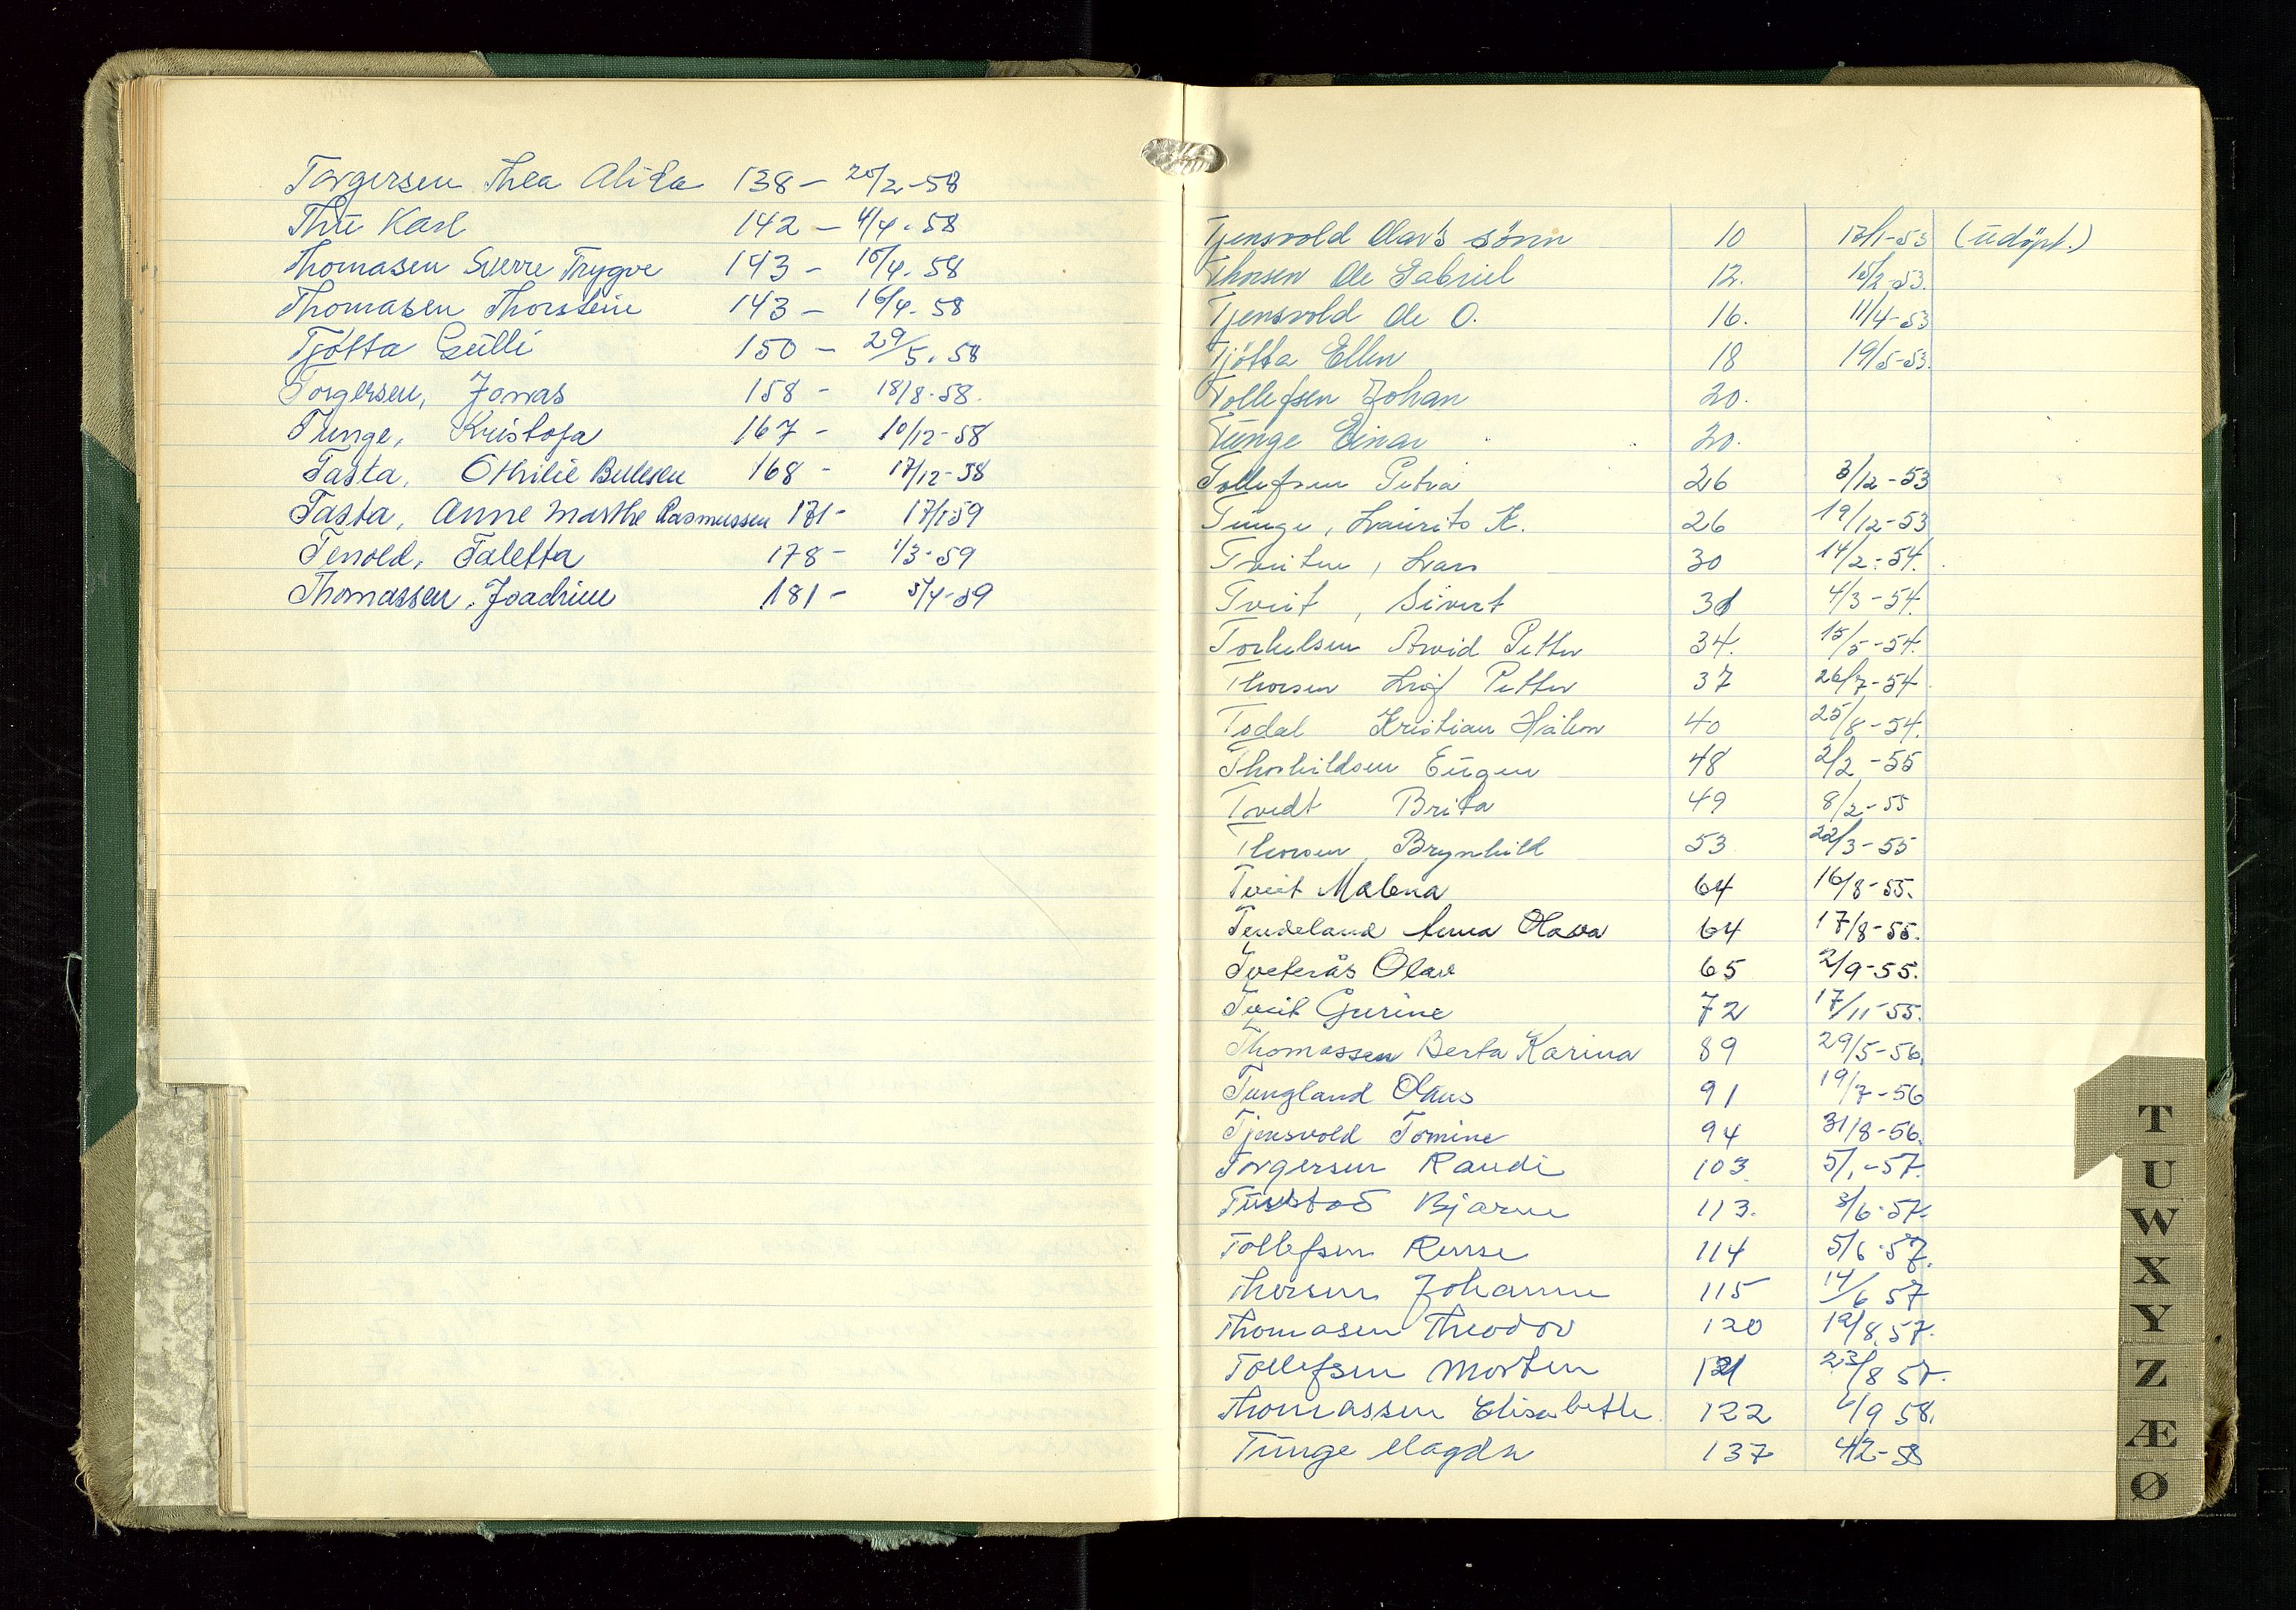 Torgersen Thea Alida 138 - 20/2-58
Thu Karl 142 - 4/4-58
Thomasen Sverre Trygve 143 - 16/4-58
Thomasen Thorstein 143 - 16/4-58
Tjøtta Gulli 150 - 29/5-58
Torgersen, Jonas 158 - 18/8-58.
Tunge, Kristofa 167 - 10/12-58
Tasta, Othilie Bullesen 168 - 17/12-58
Tasta, Anne Marthe Rasmussen 171 - 17/1-59
Tenold, Taletta 178 - 1/3-59
Thomassen, Joachim 181 - 5/4-59
Tjensvold Olav's sönn 10 13/1-53 (udöpt.)
Thorsen Ole Gabriel 12. 15/2-53.
Tjensvold Ole O. 16. 11/4-53
Tjøtta Ellen 18 19/5-53.
Tollefsen Johan 20.
Tunge Einar 20.
Tollefsen Petra 26 3/12-53
Tunge, Lauritz K. 26 19/12-53
Tveiten, Lars 30 14/2-54.
Tveit, Sivert 31 4/3-54.
Torkelsen Arvid Petter 34. 15/5-54.
Thorsen Leif Petter 37 26/7-54
Todal Kristian Håkon 40 25/8-54.
Thorkildsen Eugen 48 2/2-55
Tvedt Brita 49 8/2-55
Thorsen, Brynhild 53 22/3-55
Tveit Malena 64 16/8-55.
Tendeland Anna Olava 64 17/8-55.
Tveterås Olav 65 2/9-55.
Tveit Gurine 72 17/11-55.
Thomassen Berta Karina 89 29/5-56.
Tungland Olaus 91 19/7-56
Tjensvold Tomine 94 31/8-56.
Torgersen Randi 103. 5/1-57.
Bjarne 113. 3/6-57.
Tollefsen 114 5/6-57.
Thorsen Johanne 115 14/6 57
Thomasen Theodor 120 19/8 57.
Tollefsen Morten 121 23/8 57.
Thomassen Elisabeth 122 6/9 58.
Tunge Magda 137 4/2-58
T
U
W
X
Y
Z
Æ
Ø